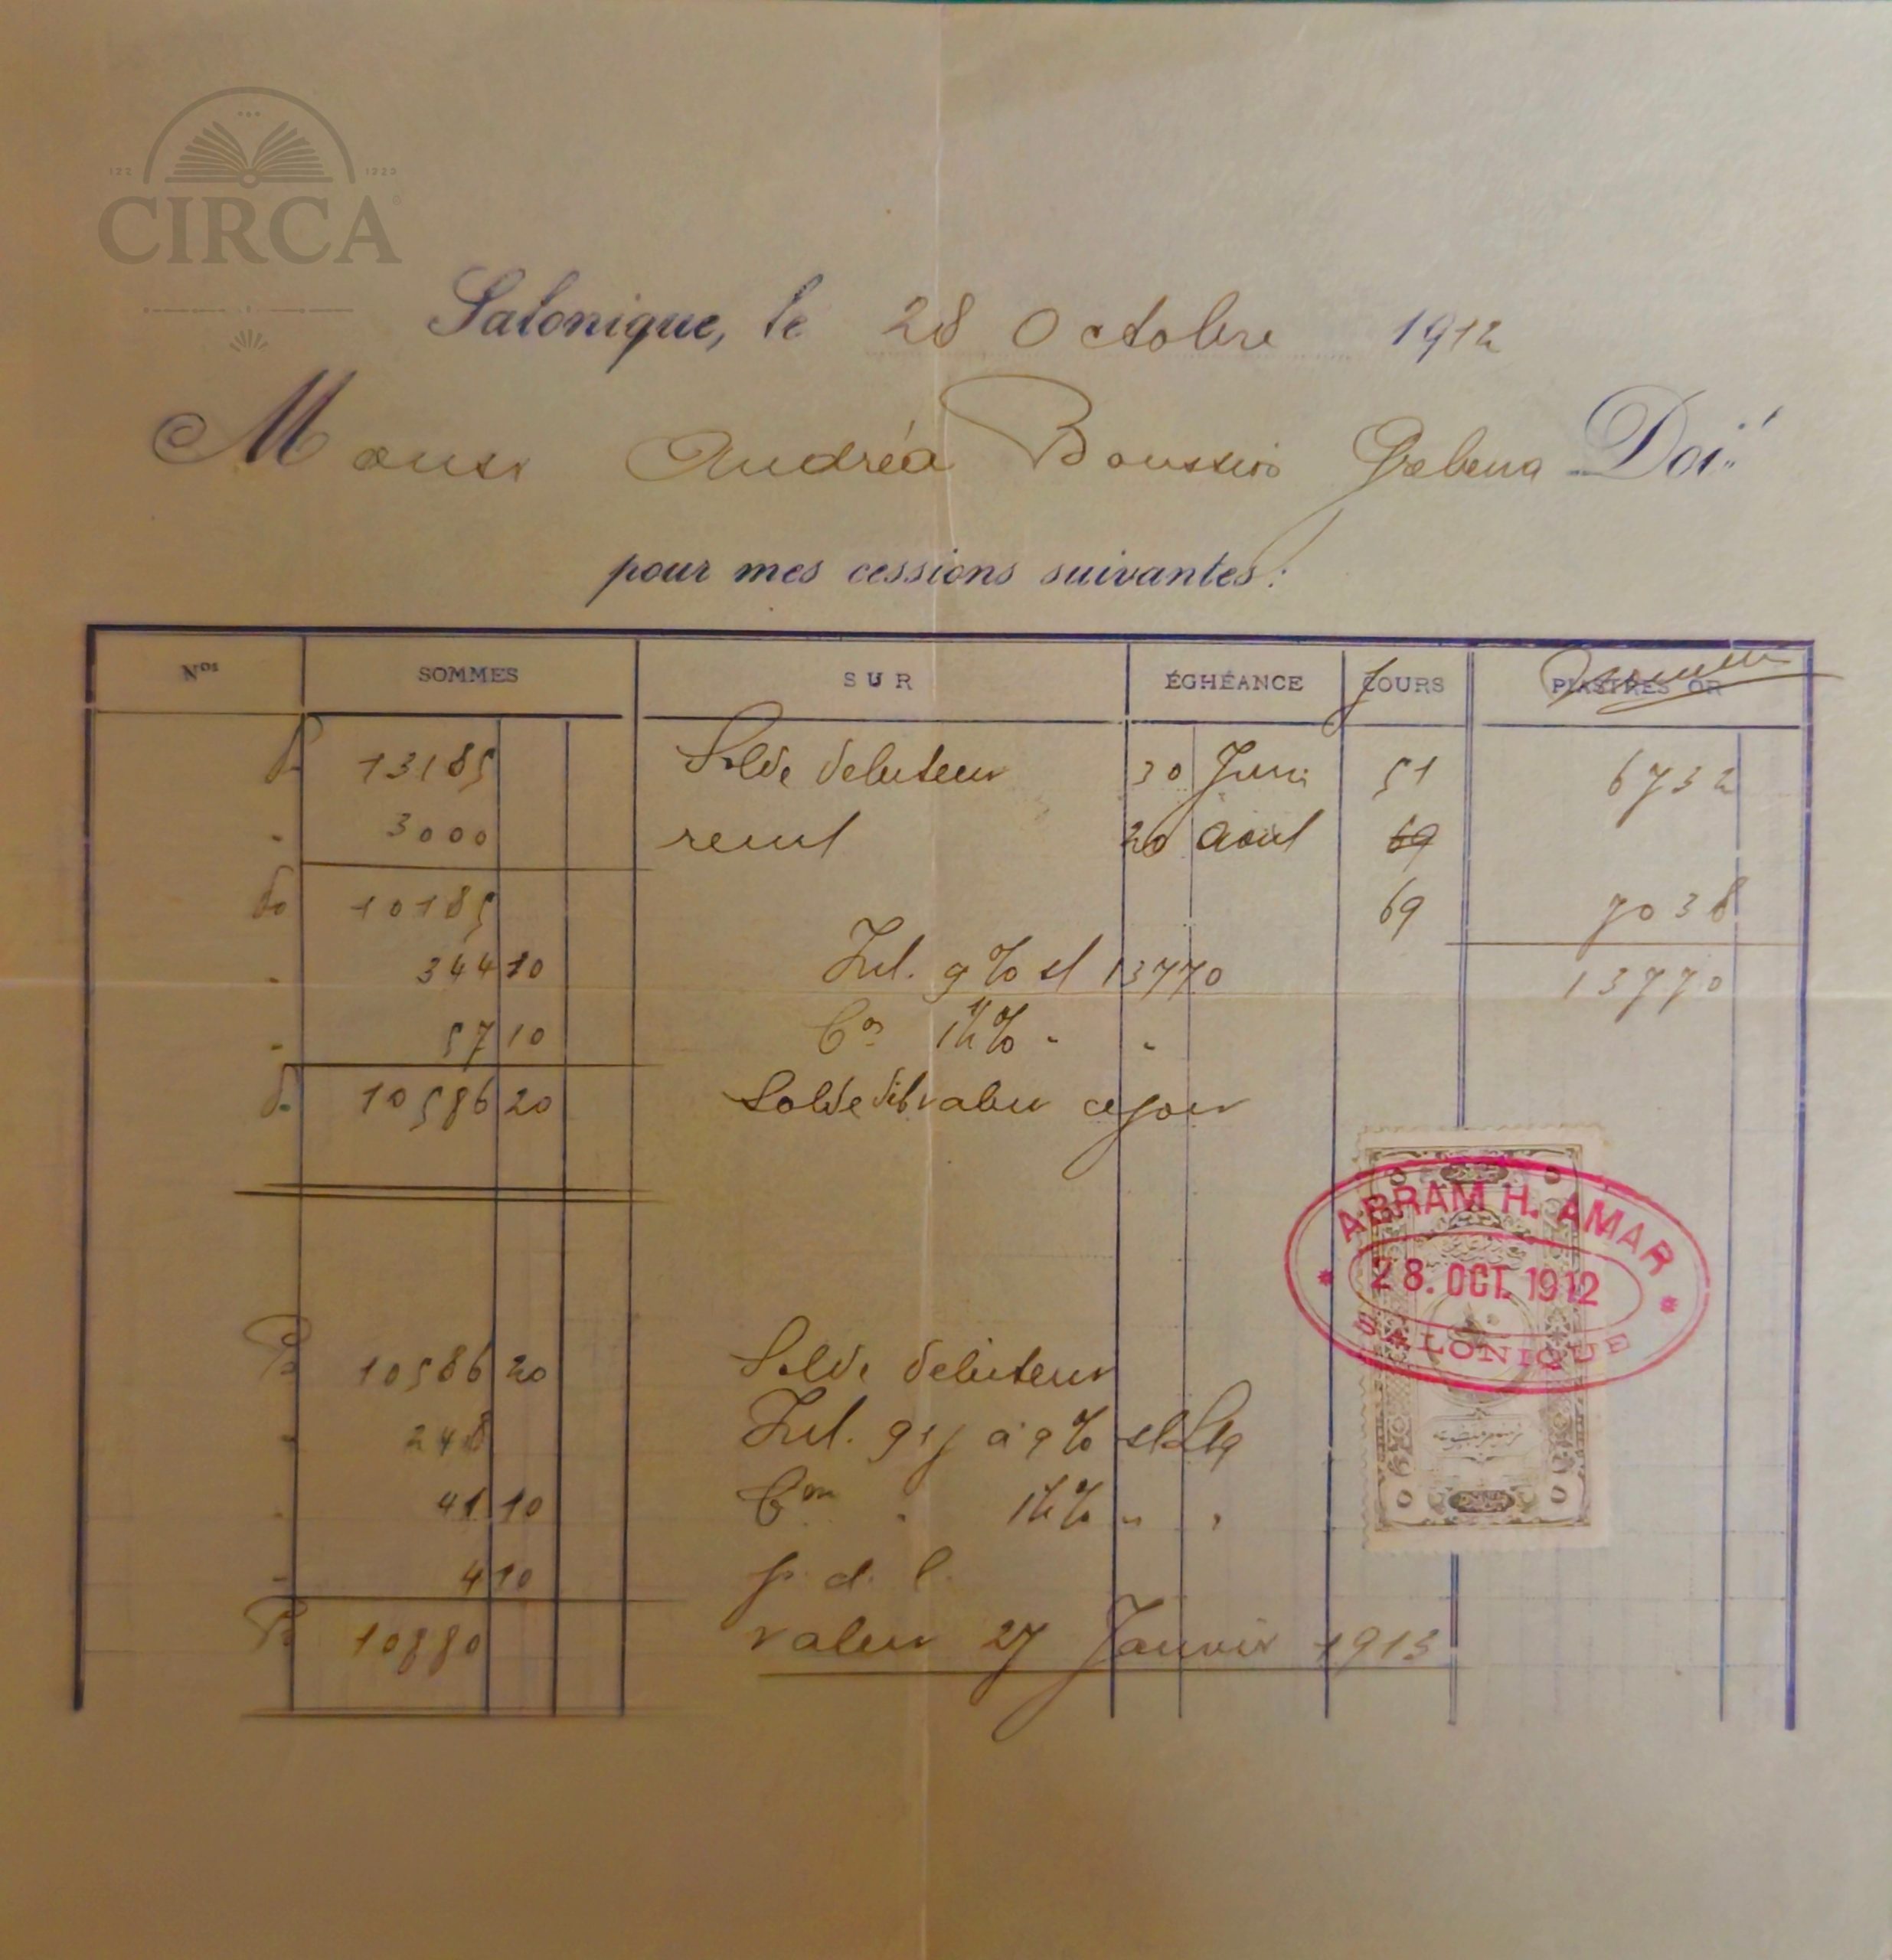 CIRCA
Salonique, le 28 Octobre 1912
Monsr Andréa Boussios Grebena Doit
pour mes cessions suivantes:
Nos SOMMES SUR ÉGHÉANCE JOURS PIASTRES OR
13185 Solde debiteur 30 Juin 51 6732
" 3000 remit 20 Aout 69
10185 69 7038
" 344 10 Int. 9% sl 13770 13770
" 57 10 Con 1½% " "
10586 20 Solde deb valeur ce jour
ABRAM H. AMAR
28. OCT. 1912
SALONIQUE
Ps 10586 20 Solde debiteur
" 248 Int. 91j a 9% sl Ltq
" 41 10 Con " 1½% " "
" 4 10 p. d. l.
Ps 10880 valeur 27 Janvier 1913